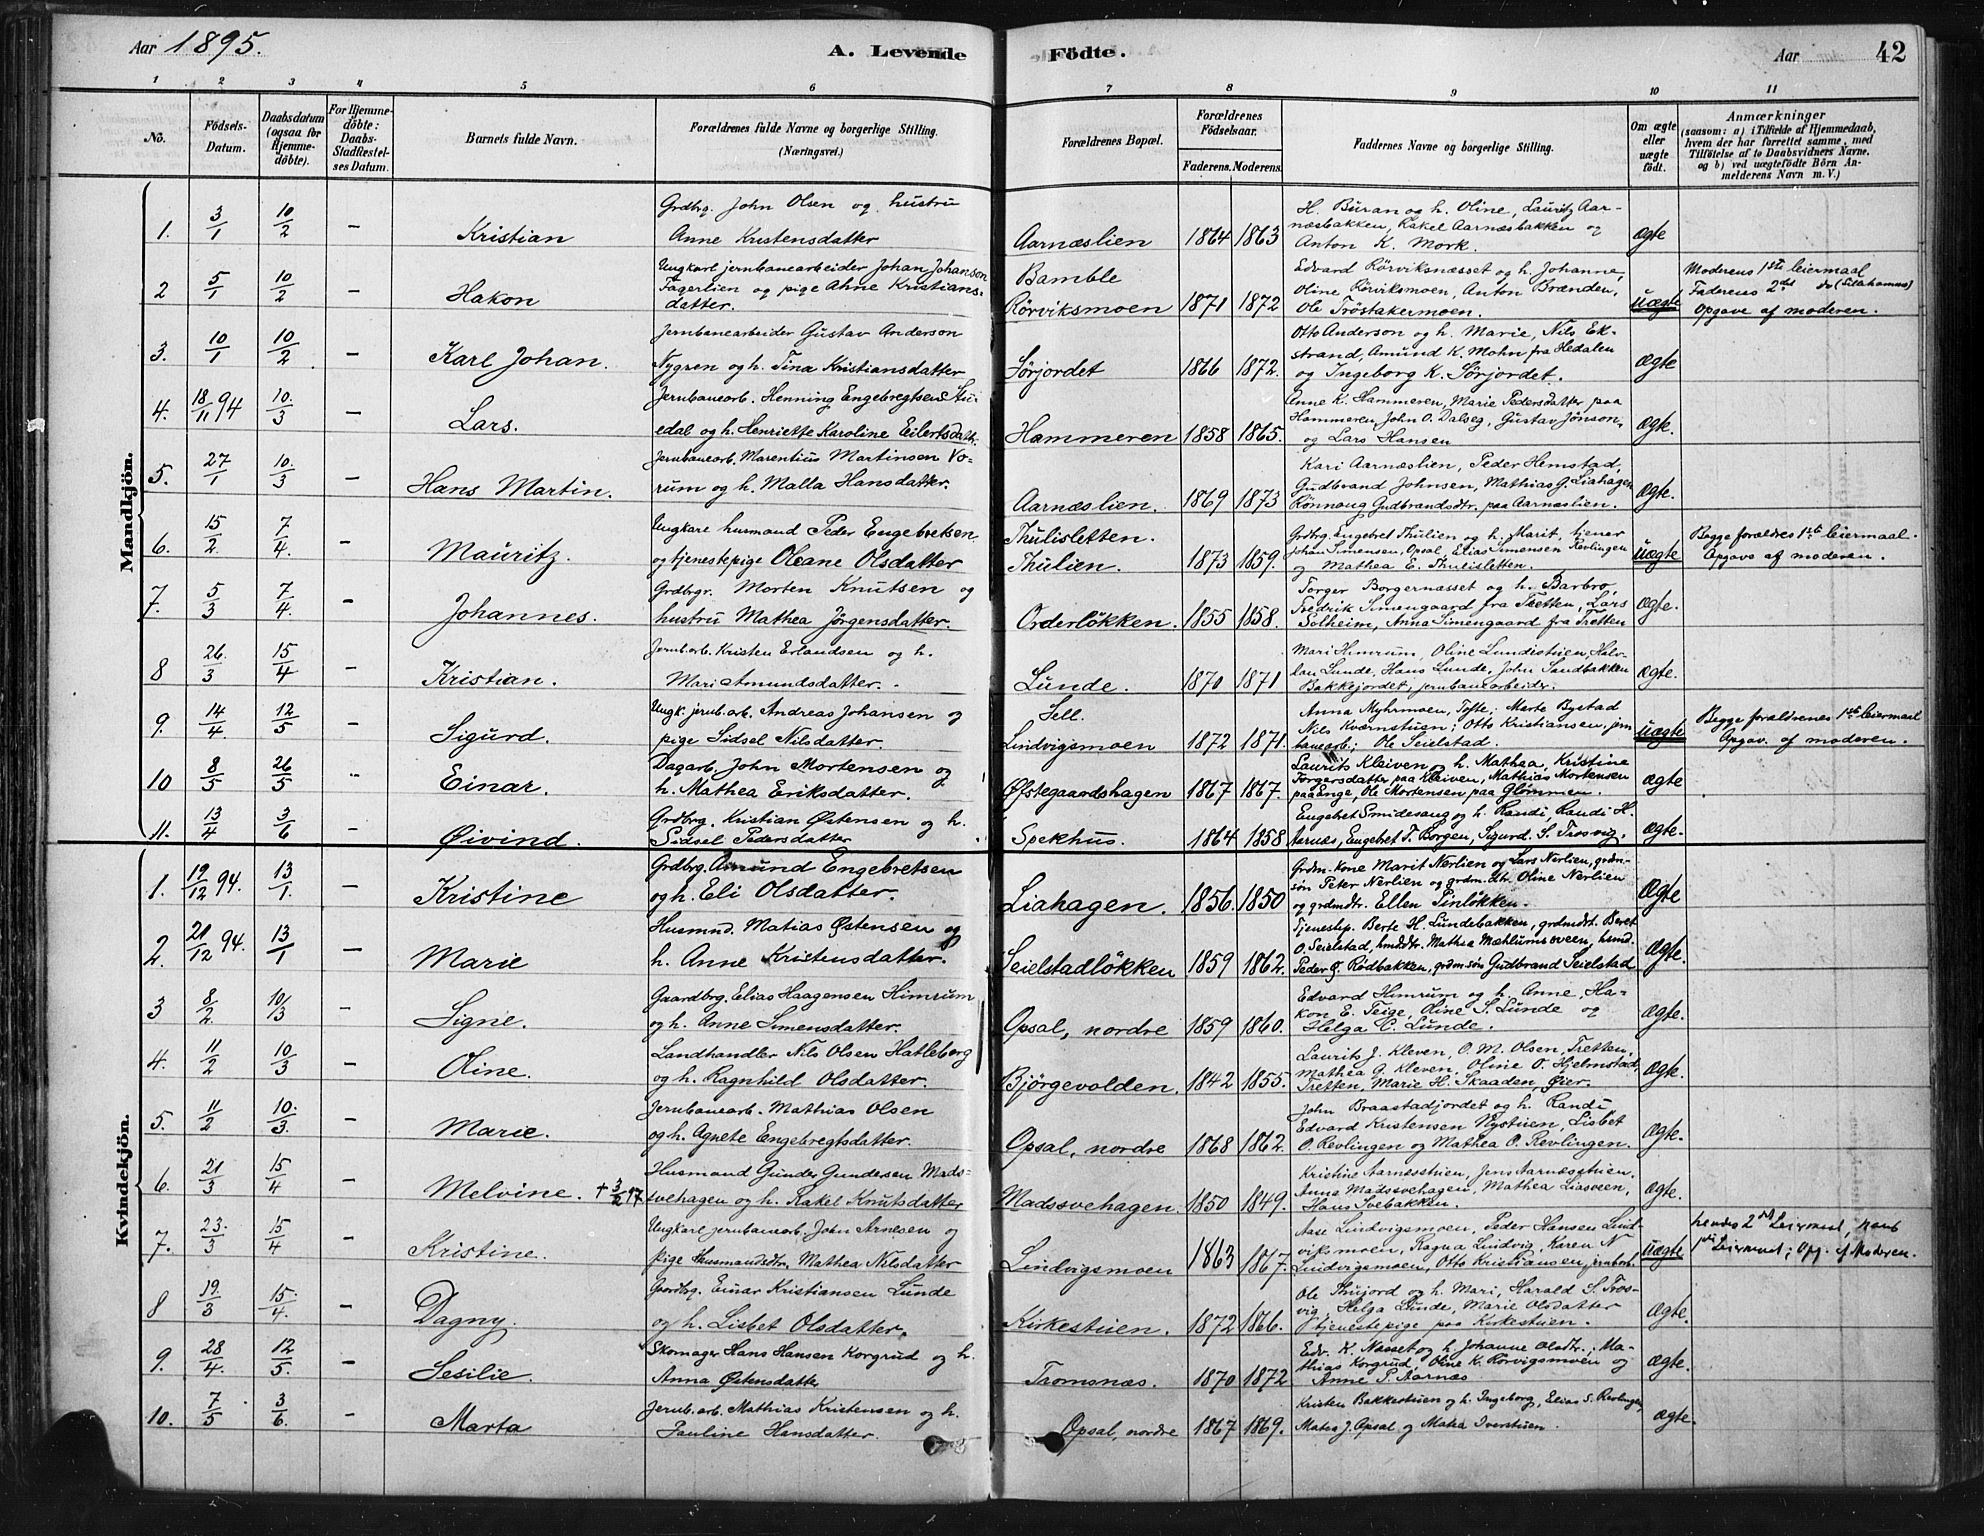 Aar 1895.
A. Levende Födte.
Aar
42
1 2 3 4 5 6 7 8 9 10 11
No.
Födsels-Datum.
Daabsdatum (ogsaa for Hjemme-döbte).
For Hjemme-döbte: Daabs-Stadfæstel-ses Datum.
Barnets fulde Navn.
Forældrenes fulde Navne og borgerlige Stilling.
(Næringsvei.)
Forældrenes Bopæl.
Forældrenes Födselsaar.
Faderens. Moderens.
Faddernes Navne og borgerlige Stilling.
Om ægte eller uægte født.
Anmærkninger
(saasom: a) i Tilfælde af Hjemmedaab,
hvem der har forrettet samme, med
Tilföielse af to Daabsvidners Navne,
og b) ved uægtefödte Börn An-
melderens Navn m. V.)
Mandkjön.
1. 3/1 10/2 - Kristian
Grdbrg. John Olsen og hustru
Anne Kristensdatter
Aarnæslien 1864 1863
H. Buran og h. Oline, Lauritz Aar-
næsbakken, Rakel Aarnæsbakken og
Anton K. Mork.
ægte
2 5/1 10/2 - Hakon
Ungkarl jernbanearbeider Johan Johanson
Fagerlien og pige Ahne Kristians-
datter.
Bamble
Rörviksmoen 1871 1872
Edvard Rörviksnæsset og h. Johanne,
Oline Rörviksmoen, Anton Brænden,
Ole Tröstakermoen.
uægte
Moderens 1ste leiermaal
Faderens 2det do
Opgave af moderen.
3. 10/1 10/2 - Karl Johan.
Jernbanearbeider Gustav Anderson
Nygren og h. Tina Kristiansdatter
Sörjordet 1866 1872.
Otto Anderson og h. Marie, Nils Ek-
strand, Amund K. Mohn fra Hedalen
og Ingeborg K. Sörjordet.
ægte
4. 18/11 94 10/3 - Lars.
Jernbanearb. Henning Engebregtsen
edal og h. Henriette Karoline Eilertsdatt.
Hammeren 1858 1865.
Anne K. Hammeren, Marie Pedersdatter paa
Hammeren, John O. Dalseg, Gustav Jönson,
og Lars Hansen
ægte.
5. 27/1 10/3 - Hans Martin.
Jernbanearb. Marentius Martinsen Vo-
rum og h. Malla Hansdatter.
Aarnæslien. 1869 1873
Kari Aarnæslien, Peder Hemstad,
Gudbrand Johnsen, Mathias G. Liahagen
Rönnaug Gudbrandsdtr. paa Aarnæslien.
ægte.
6. 15/2 7/4. - Mauritz.
Ungkare husmand Peder Engebretsen
og tjenestepige Oleane Olsdatter
Thulisletten.
Thulien. 1873 1859.
Grdbrg. Engebret Thulien og h. Marit, tjener
Johan Simensen, Opsal, Elias Simensen Revlingen
og Mathea E. Thulisletten.
uægte
Begge forældres 1ste leiermaal.
Opgave af moderen.
7. 5/3 7/4. - Johannes.
Grdbrgr. Morten Knutsen og
hustru Mathea Jörgensdatter.
Orderlökken. 1855 1858.
Torger Borgernæsset og h. Barbro,
Fredrik Simengaard fra Tretten, Lars
Solheim, Anna Simengaard fra Tretten
ægte.
8 26/3 15/4 - Kristian.
Jernb.arb. Kristen Erlandsen og h.
Mari Amundsdatter.
Lunde. 1870 1871
Mari Himrum, Oline Lundestuen, Halv-
dan Lunde, Hans Lunde, John Sandbakken
Bakkejordet, jernbanearbeider.
ægte.
9. 14/4. 12/5 - Sigurd.
Ungk. jernb.arb. Andreas Johansen og
pige Sidsel Nilsdatter.
Sell.
Lindvigsmoen 1872 1871.
Anna Myhrmoen, Tofte; Marte Bystad
Nils Kværnstuen; Otto Kristiansen, jern
banearb; Ole Seielstad.
uægte
Begge forældrenes 1ste leiermaal
Opgav. af moderen.
10 8/5 26/5 " Einar.
Dagarb. John Mortensen og
h. Mathea Eriksdatter.
Øfstegaardshagen 1867 1867.
Laurits Kleiven og h. Mathea, Kristine
Torgersdatter paa Kleiven, Mathias Mortensen
paa Enge, Ole Mortensen paa Glommen.
ægte
11. 13/4 3/6 - Øivind.
Grdbrg. Kristian Østensen og h.
Sidsel Pedersdatter
Spekhus. 1864 1858
Engebret Smidesang og h. Randi, Randi H.
Aarnæs, Engebret T. Borgen, Sigurd. S. Trosvig.
ægte.
Kvindekjön.
1. 19/12 94. 13/1. - Kristine
Grdbrg. Amund Engebretsen
og h. Eli Olsdatter.
Liahagen. 1856. 1850
Grdm. kone Marit Nerlien og Lars Nerlien, grdm-
sön Peter Nerlien og grdm. dtr. Oline Nerlien
og grdmdtr. Ellen Pinlökken.
ægte
2. 21/12 94. 13/1 - Marie
Husmnd. Matias Østensen og
h. Anne Kristensdatter.
Seielstadlökken 1859 1862.
Tjenestep. Berte H. Lundebakken, grdmdtr. Beret
O. Seielstad, hmddtr. Mathea Mæhlumsveen, hsmd.
Peder G. Rödbakken, grdmsön Gudbrand Seielstad
ægte.
3 8/2. 10/3 - Signe.
Gaardbrg. Elias Haagensen Himrum
og h. Anne Simensdatter.
Opsal, nordre 1859 1860.
Edvard Himrum og h. Anne, Ha-
kon E. Teige, Oline S. Lunde og
Helga C. Lunde.
ægte.
4. 11/2 10/3 - Oline.
Landhandler Nils Olsen Hatleborg
og h. Ragnhild Olsdatter.
Bjørgevolden. 1842 1855.
Laurits J. Kleven, O. M. Olsen, Tretten,
Mathea G. Kleven, Oline O. Hjelmstad,
Tretten, Marie H. Skaaden, Øier.
ægte.
5. 11/2 10/3. - Marie.
Jernbanearb. Mathias Olsen
og h. Agnete Engebregtsdatter.
Opsal, nordre 1868 1862.
John Braastadjordet og h. Randi
Edvard Kristensen Nystuen, Lisbet
O. Revlingen og Mathea O. Revlingen.
ægte.
6. 21/3 15/4 - Melvine. + 3/2 97
Husmand Gunder Gundesen Mads-
svehagen og h. Rakel Knutsdatter
Madssvehagen 1850 1849.
Kristine Aarnæsstuen, Jens Aarnæsstuen,
Anna Madssvehagen, Mathea Liasveen,
Hans Svebakken.
ægte.
7. 23/3 15/4 - Kristine.
Ungkarl jernbanearb. John Arnesen og
pige Husmandsdtr. Mathea Nilsdatter
Lindvigsmoen 1863 1867.
Aase Lindvigsmoen, Peder Hansen Lind
viksmoen, Ragna Lindvig, Karen N
Lindvigsmoen, Otto Kristiansen, jernbarb.
uægte
hendes 2det Leiermaal, hans
1ste Leiermaal; Opg. af Moderen.
8 19/3 15/4. - Dagny.
Gaardbrg. Einar Kristiansen Lunde
og h. Lisbet Olsdatter.
Kirkestuen. 1872 1866.
Ole Thujord og h. Mari, Harald S. Tros-
vig, Helga Lunde, Marie Olsdatter
tjenestepige paa Kirkestuen.
ægte.
9. 28/4. 12/5. - Sesilie.
Skomager Hans Hansen Korgrud og h.
Anna Østensdatter
Tromsnæs. 1870 1872
Edv. K. Næsset og h. Johanne Olsdtr., Ma-
thias Korgrud, Oline K. Rörvigsmoen og
Anne P. Aarnæs
ægte.
10. 7/5 3/6. - Marta
Jernb.arb. Mathias Kristensen og h.
Pauline Hansdatter.
Opsal, nordre 1867 1869.
Kristen Bakkestuen og h. Ingeborg, Elias S. Revlingen,
Matea J. Opsal og Matea Iverstuen.
ægte.